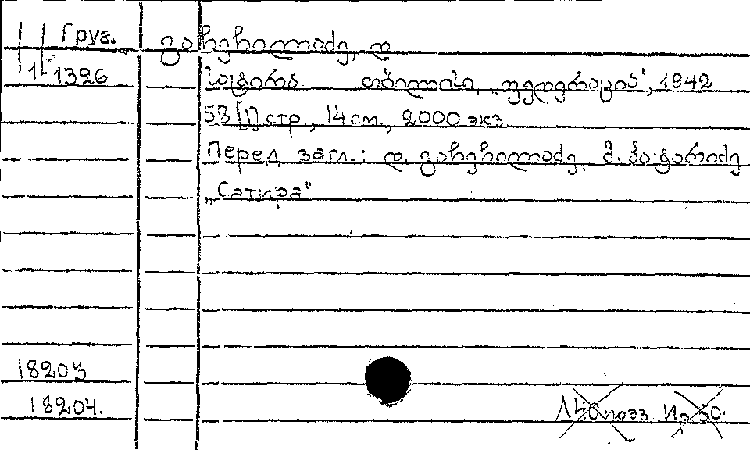 Груз. გაჩეჩილაძე, დ.
1326 სატირა. თბილისი, „ფედერაცია", 1942
53 [1] стр., 14 см., 2000 экз.
Перед загл.: დ. გაჩეჩილაძე, მ. პატარიძე
„Сатира"
18203
18204.